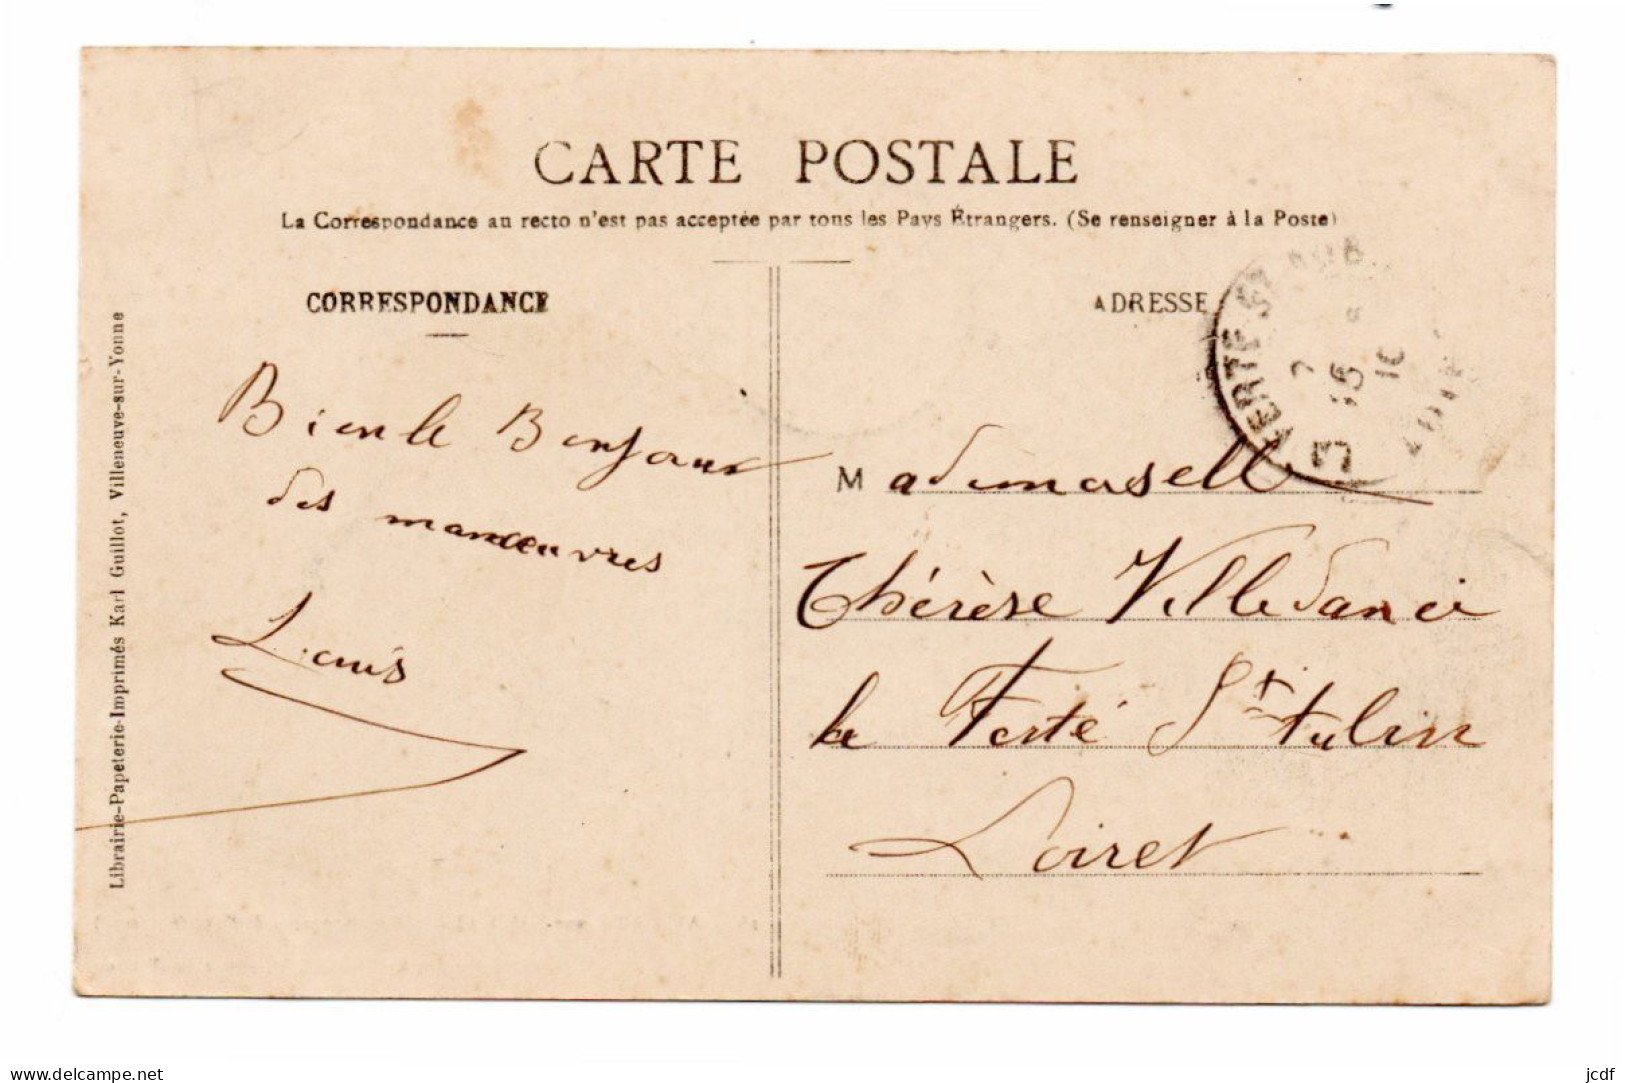 CARTE POSTALE
La Correspondance au recto n'est pas acceptée par tous les Pays Étrangers. (Se renseigner à la Poste)
CORRESPONDANCE
ADRESSE
Librairie-Papeterie-Imprimés Karl Guillot, Villeneuve-sur-Yonne
Bien le Bonjour
des manœuvres
Louis
Mademoiselle
Thérèse
la Ferté St
Loiret
FERTÉ ST AUB
www.delcampe.net
jcdf